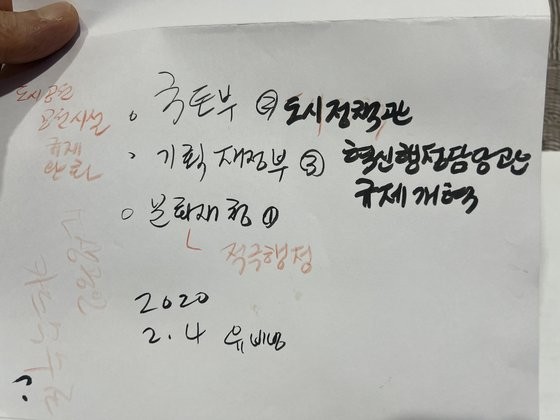 도시공원
공원시설
규제
완화
o 국토부 ② 도시정책관
> 기획재정부 ③ 혁신행정담당관
규제개혁
o 문화재청 ①
적극행정
2020
2.4 유비상